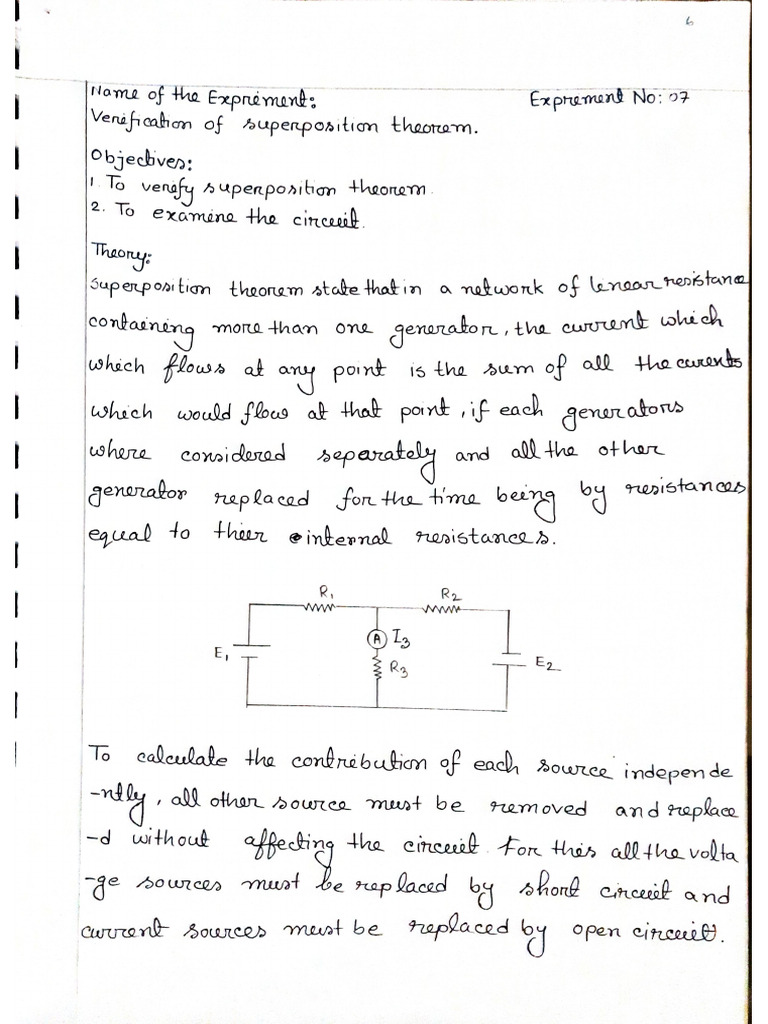 6
Name of the Exprement:
Exprement No: 07
Verification of superposition theorem.
Objectives:
1. To verify superposition theorem.
2. To examine the circuit.
Theory:
Superposition theorem state that in a network of lenear resistance
containing more than one generator, the current which
which flows at any point is the sum of all the curents
which would flow at that point, if each generators
where considered separately and all the other
generator replaced for the time being by resistances
equal to thier internal resistances.
R1
R2
E1
A
I3
R3
E2
To calculate the contribution of each source independe
-ntly, all other source must be removed and replace
-d without affecting the circuit. For this all the volta
-ge sources must be replaced by short circuit and
current sources must be replaced by open circuit.